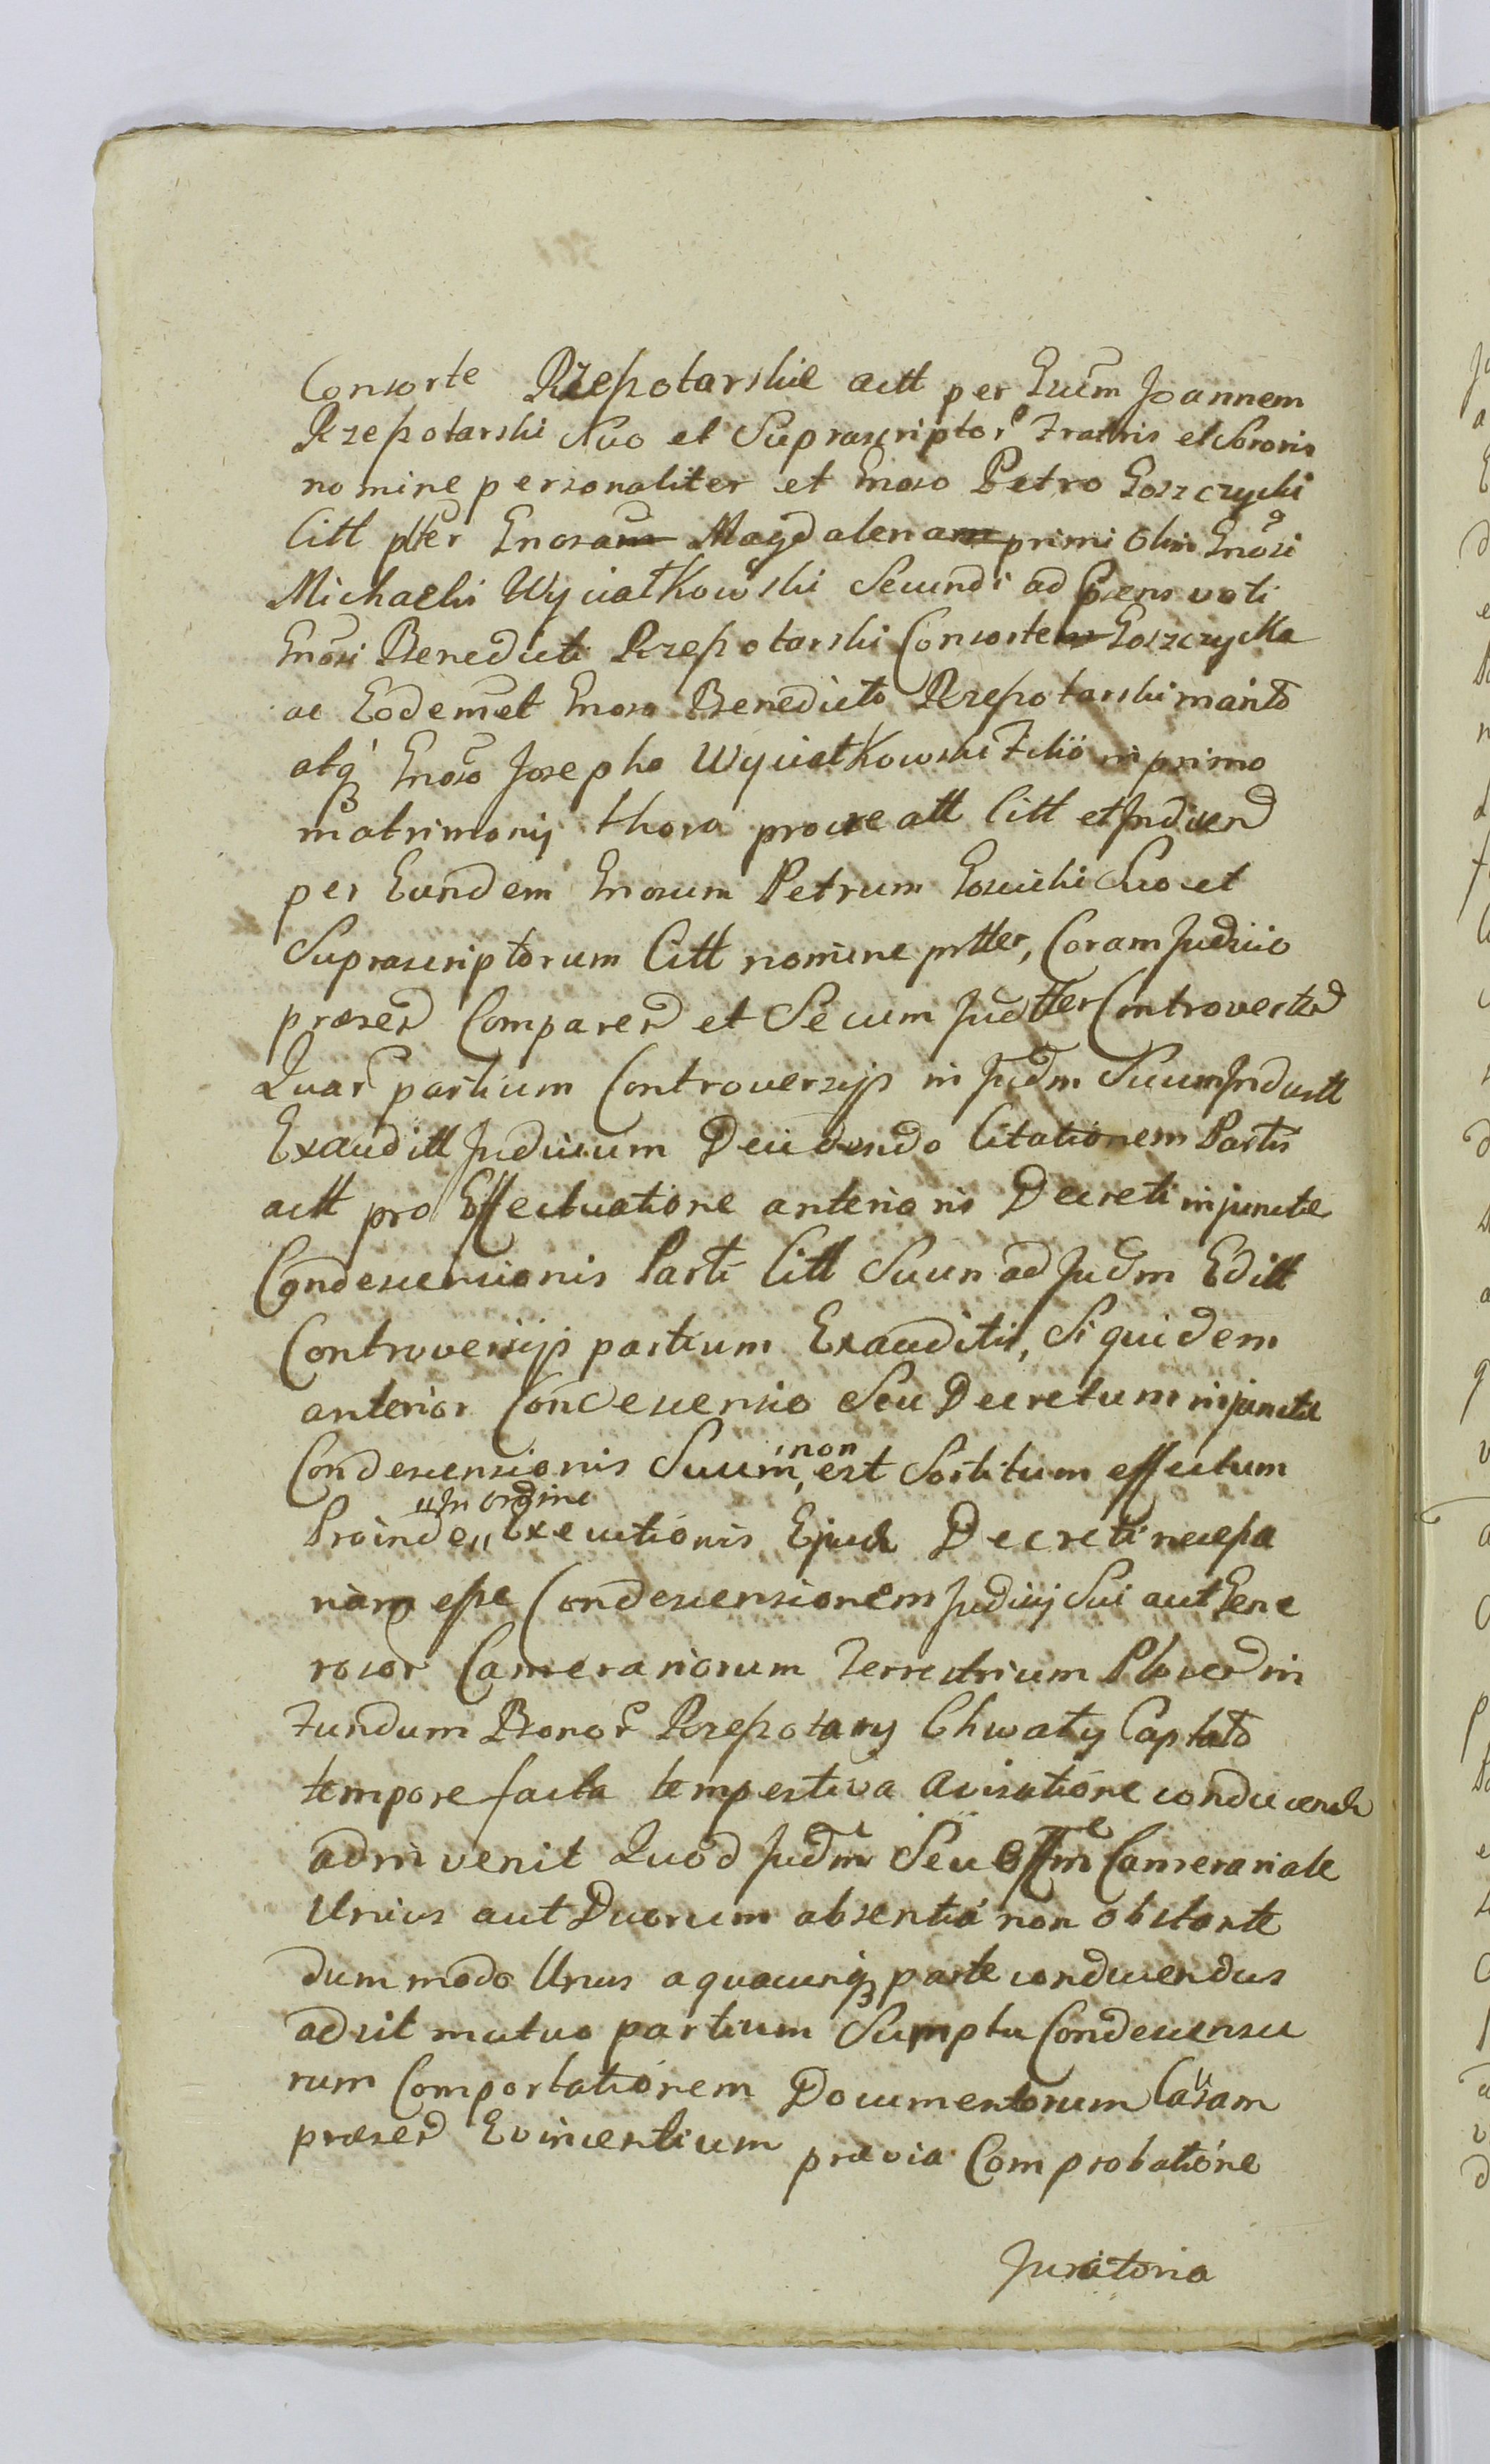 Consorte Rzepotarskie actt per Gnem Joannem
Rzepotarski Suo et Suprascriptor Fratris et Sororis
nomine personaliter et Gnoso Petro Goszczycki
Citt plter Gnosam Magdalenam primi olim Gnosi
Michaelis Wyciatkowski Secundi ad praens voti
Gnosi Benedicti Rzepotarski Consortem Goszczycka
ac Eodemet Gnoso Benedicto Rzepotarski marito
atq Gnoso Josepho Wyciatkowski Filio in primo
matrimonij thoro procreatt Citt et Inducen
per Eundem Gnosum Petrum Goscicki Suo et
Suprascriptorum Citt nomine prtter, Coram Judicio
praesen Comparen et Secum Judtter Controverten
Quar partium Controversijs in Judm Suum Inductt
Exauditt Judicium Decidendo Citationem Partis
actt pro Effectuatione anterioris Decreti injunctae
Condescensionis Parti Citt Suun ad Judm Editt
Controversijs partium Exauditis, Siquidem
anterior Condescensio Seu Decretum injunctae
Condescensionis Suum, non est Sortitum effectum
Proinde,, in ordine Executionis Ejusd Decreti necessa
riam esse Condescensionem Judicij Sui aut Gene
rosor Camerariorum Terrestrium Plocen in
Fundum Bonor Rzepotary Chwaty Captato
tempore facta tempestiva avisatione conducend
adinvenit Quod Judm Seu offm Camerariale
Unius aut Duorum absentia non obstante
dummodo Unus a quacunq parte conducendus
adsit mutuo partium Sumptu Condescensu
rum Comportationem Documentorum Causam
praesen Evincentium praevia Comprobatione
Juratoria